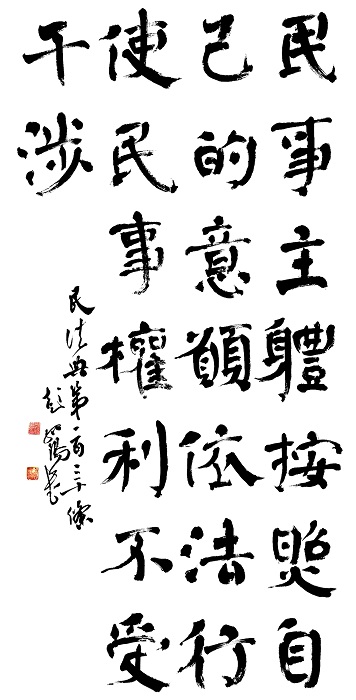 民事主體按照自
己的意願依法行
使民事權利不受
干涉
民法典第一百三十條